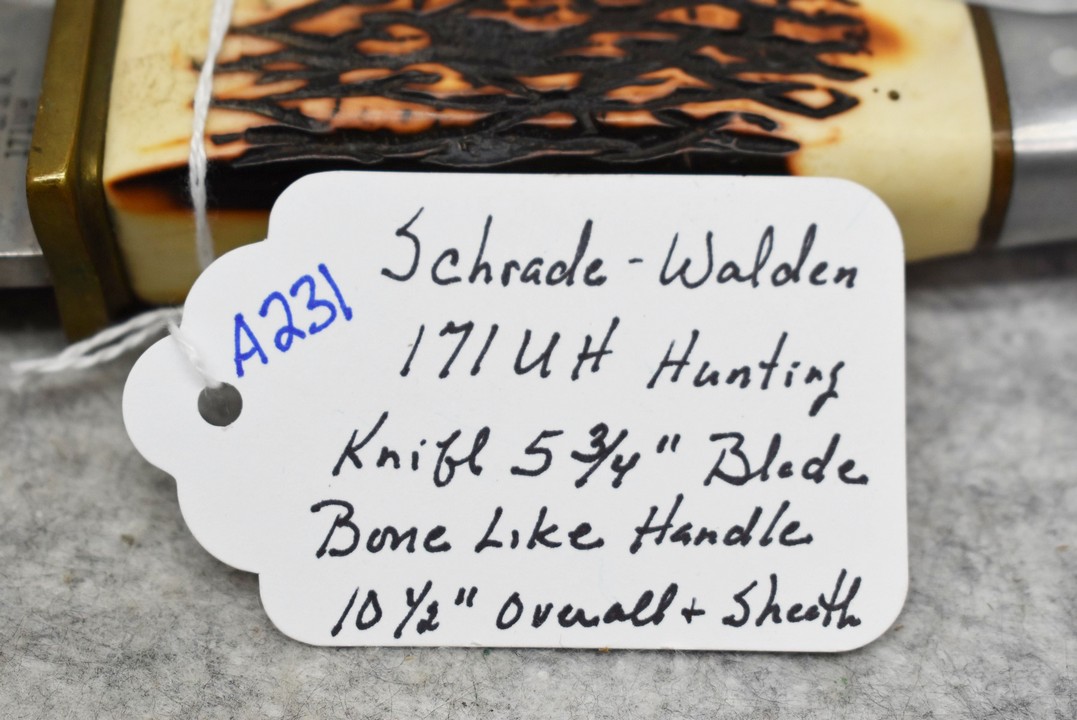 A231
Schrade-Walden
171UH Hunting
Knife 5 3/4" Blade
Bone Like Handle
10 1/2" Overall + Sheath